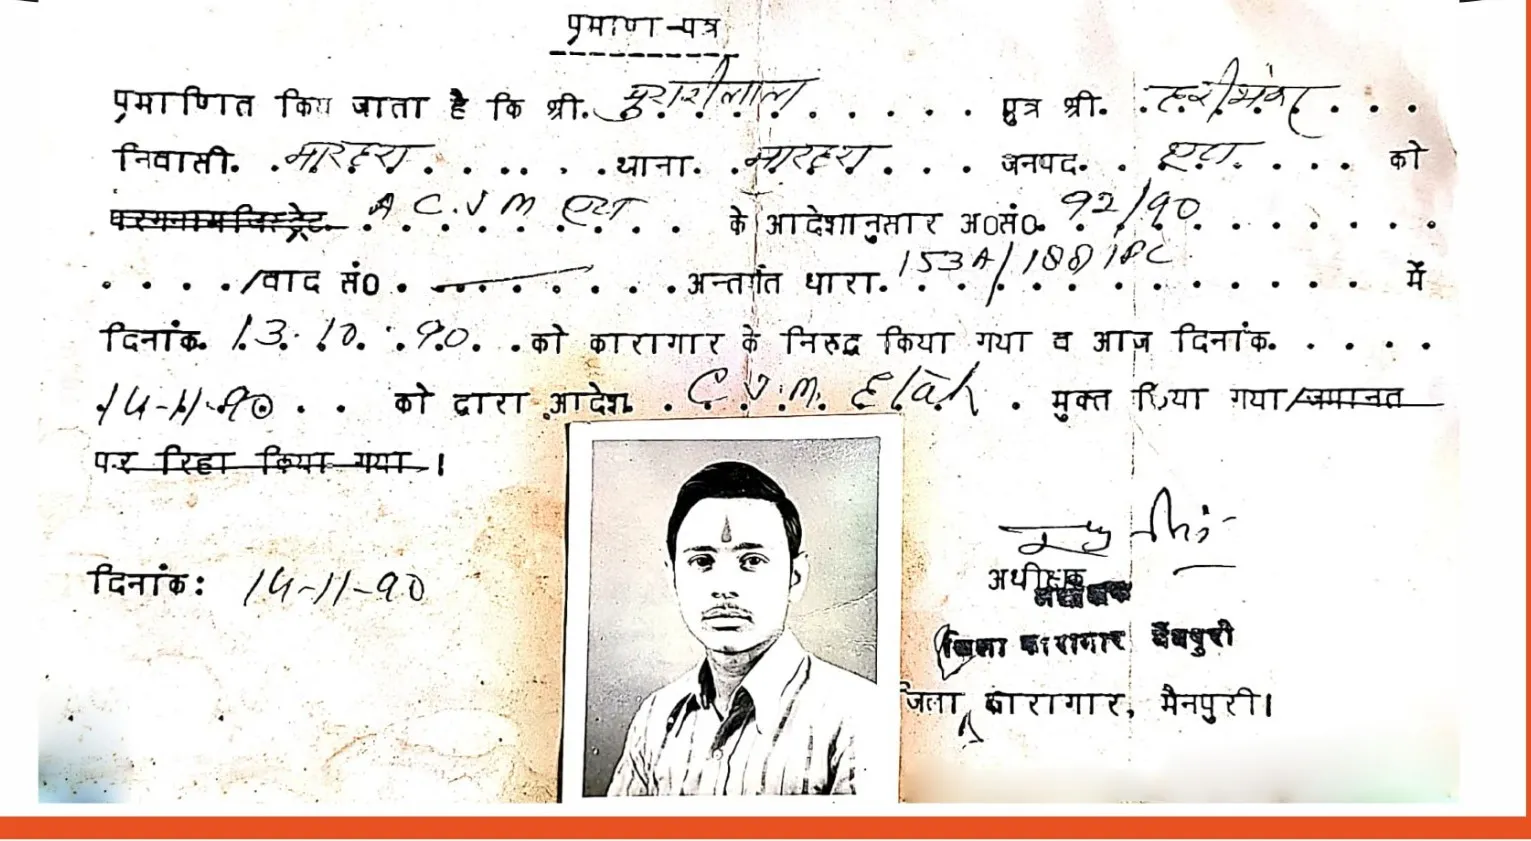 प्रमाण-पत्र
प्रमाणित किया जाता है कि श्री. मुरारीलाल पुत्र श्री. हरीशंकर
निवासी. मारहरा थाना. मारहरा जनपद. एटा को
परगनामजिस्ट्रेट. A C.J M एटा के आदेशानुसार अ0सं0. 92/90
/वाद सं0 अन्तर्गत धारा. 153A/188 IPC में
दिनांक. 13.10.90 को कारागार के निरुद्ध किया गया व आज दिनांक.
14-11-90 को द्वारा आदेश C.J.M. Etah मुक्त किया गया/जमानत
पर रिहा किया गया।
दिनांक: 14-11-90
अधीक्षक
जिला कारागार मैनपुरी
जिला कारागार, मैनपुरी।